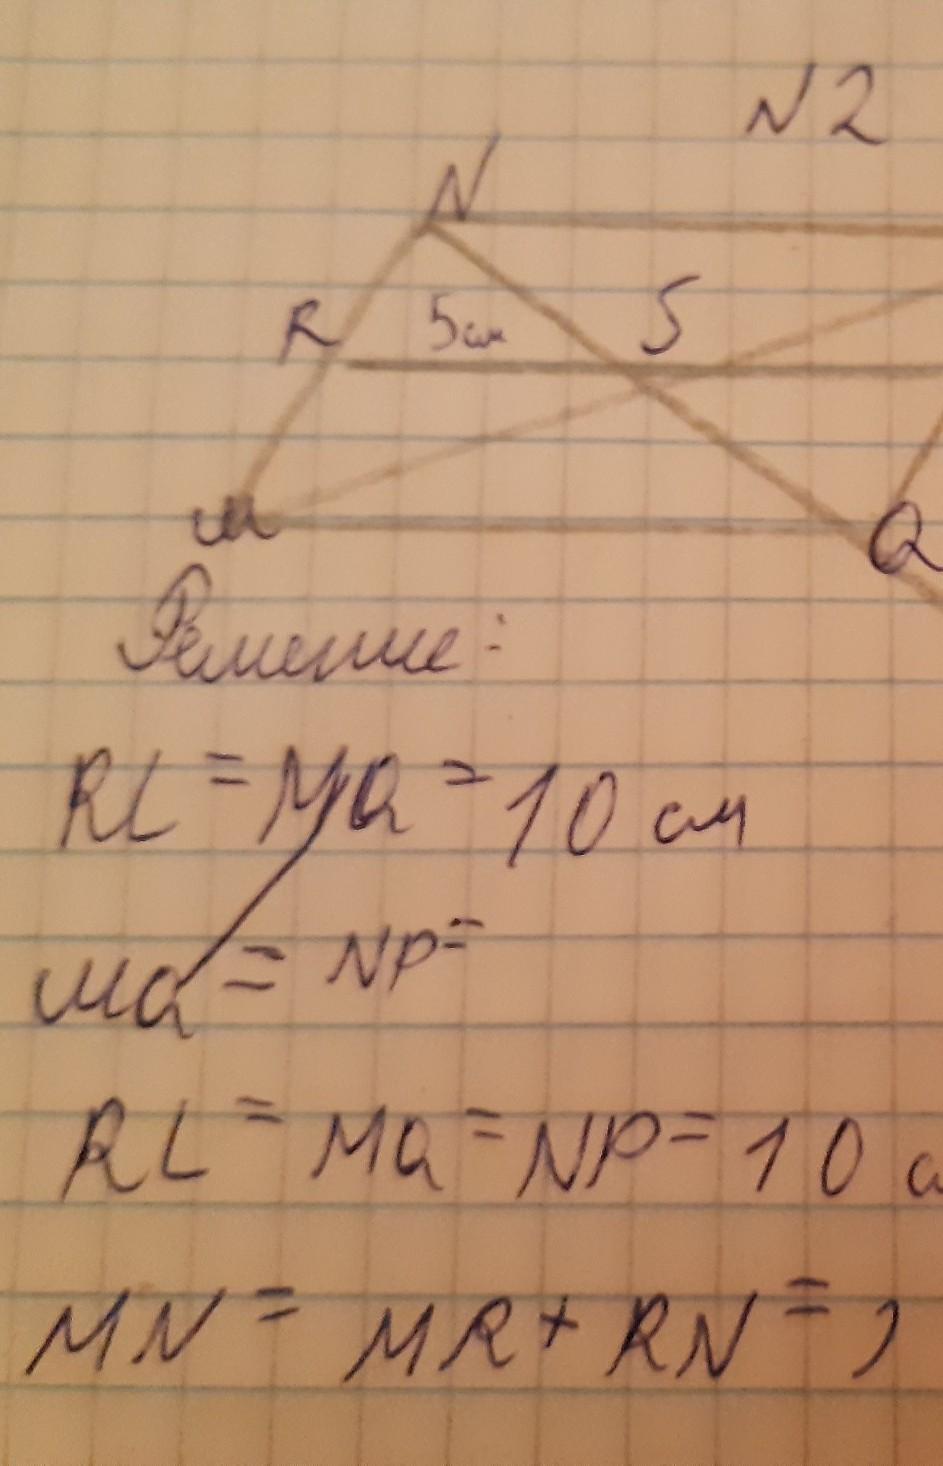 N2
N
R 5см S
м Q
Решение:
RL = MQ = 10 см
MQ = NP =
RL = MQ = NP = 10 с
MN = MR + RN =